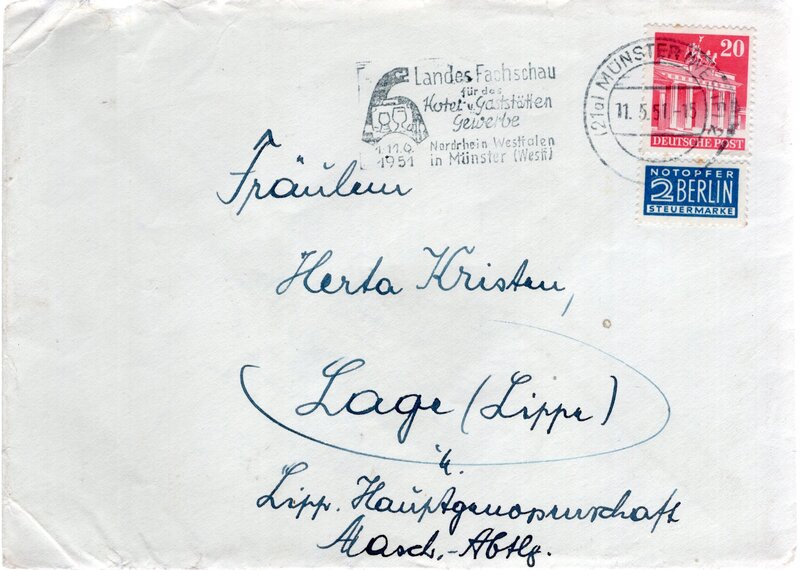 Landes Fachschau
für das
Hotel u. Gaststätten
Gewerbe
Nordrhein Westfalen
in Münster (Westf)
1951
(21a) MÜNSTER (WESTF)
11.5.51-15
20
DEUTSCHE POST
NOTOPFER
2 BERLIN
STEUERMARKE
Fräulein
Herta Kristen,
Lage (Lippe)
Lipp. Hauptgenossenschaft
Masch.-Abtlg.